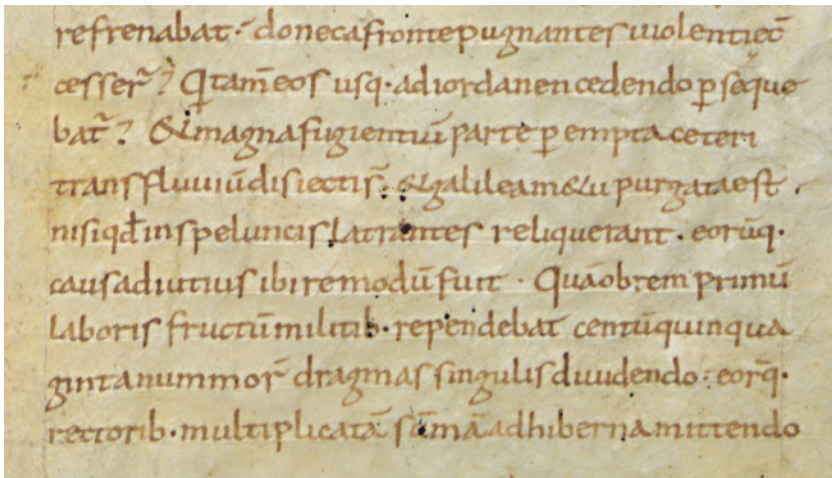 refrenabat· donec a fronte pugnantes uiolentię c̄
cesser̄? Qui tam̄ eos usq· ad iordanen cedendo p̄ seque
bat̄? & magna fugientiū parte p̄empta ceteri
trans fluuiū disiecti s̄· & galilea metu purgata est·
nisi qd̄ in speluncis latrantes reliquerant· eorūq·
causa diutius ibi remodū fuit· Quāobrem primū
laboris fructū militib· rependebat centū quinqua
ginta nummor̄ dragmas singulis diuidendo· eorūq·
rectorib· multiplicatā sūmā ad hiberna mittendo